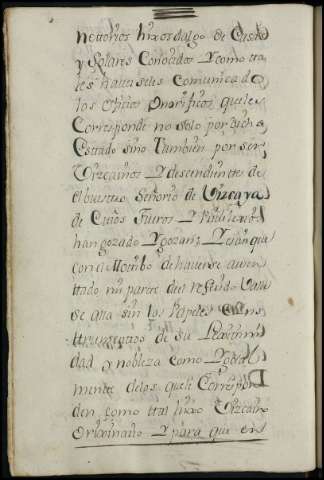 nottorios hixos dalgo de Casas
y Solares Conocidos Y Como tta
les haverseles Comunicado
los Ofizios Onorificos que les
Corresponde no solo por dicho
Estado sino Tambien por ser
Vizcainos Y descendientes de
el Señorio de Vizcaya
de Cuios fueros
han gozado Y gozan; Y
con el Motibo de haverse ausen
ttado mi parte del
se alla sin los Papeles e Yns
ttrumentos de su
dad y nobleza como
mente de los que le Correspon
den, como ttal hixo Vizcaino
Orixinario Y para que en